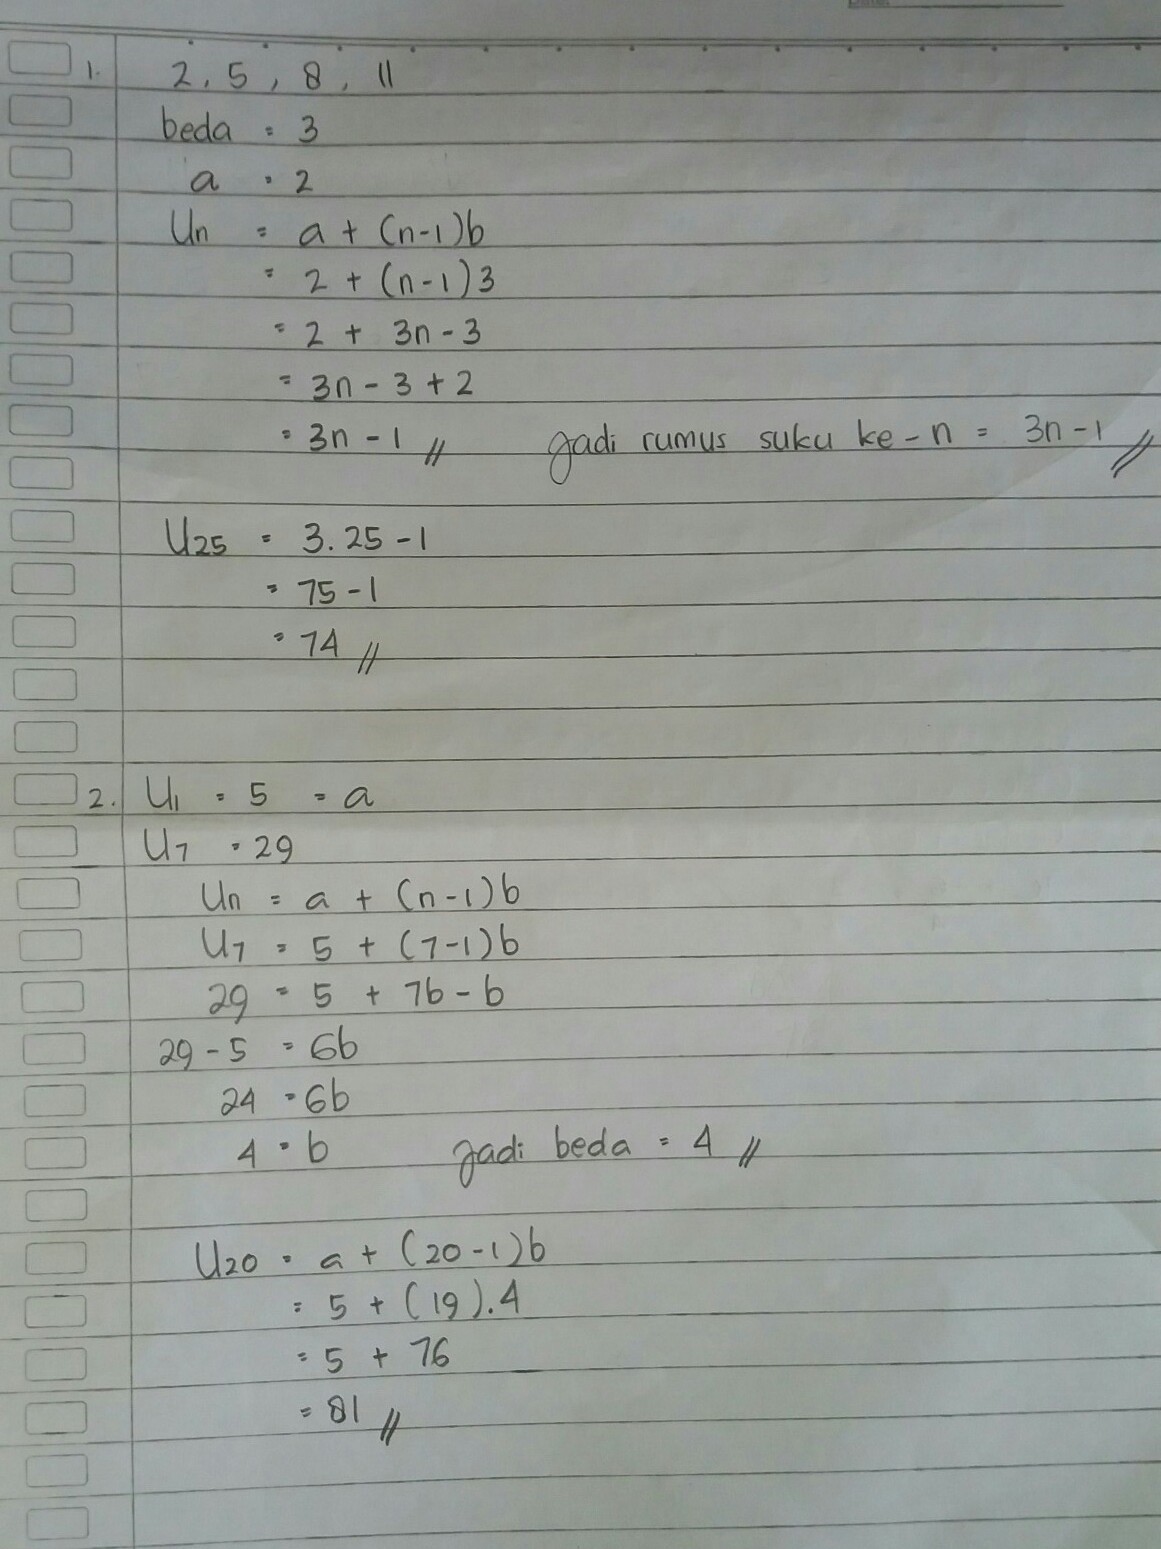 1. 2, 5, 8, 11
beda = 3
a = 2
Un = a + (n-1)b
= 2 + (n-1)3
= 2 + 3n - 3
= 3n - 3 + 2
= 3n - 1 // jadi rumus suku ke-n = 3n-1 //
U25 = 3.25 - 1
= 75 - 1
= 74 //
2. U1 = 5 = a
U7 = 29
Un = a + (n-1)b
U7 = 5 + (7-1)b
29 = 5 + 7b - b
29 - 5 = 6b
24 = 6b
4 = b jadi beda = 4 //
U20 = a + (20-1)b
= 5 + (19).4
= 5 + 76
= 81 //